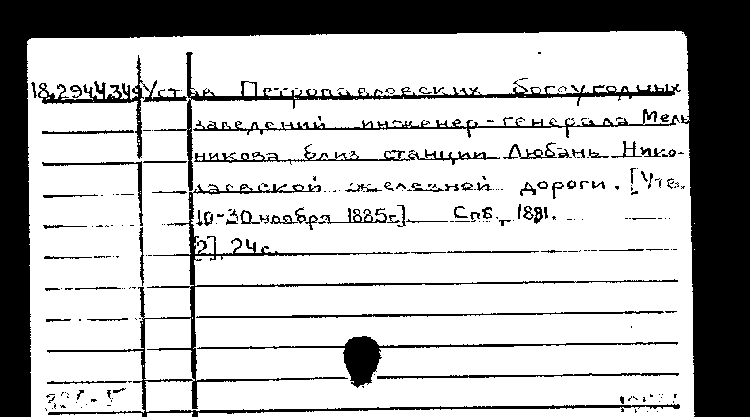 18.294.4.349 Устав Петропавловских богоугодных
заведений инженер-генерала Мель
никова, близ станции Любань Нико-
лаевской железной дороги. [Утв.
10-30 ноября 1885г.]. Спб., 1891.
[2], 24с.